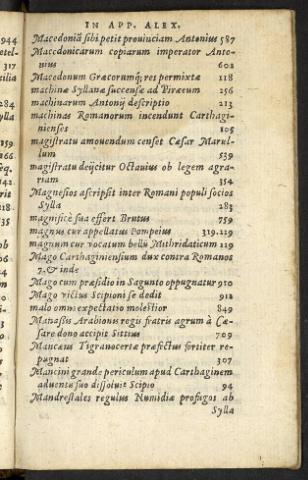 IN APP. ALEX.
Macedoniã sibi petit prouinciam Antonius 587
Macedonicarum copiarum imperator Anto-
nius 602
Macedonum Græcorumq́; res permixtæ 118
machinæ Syllanæ succensæ ad Piræeum 256
machinarum Antonij descriptio 213
machinas Romanorum incendunt Carthagi-
nienses 105
magistratu amouendum censet Cæsar Marul-
lum 539
magistratu deijcitur Octauius ob legem agra-
riam 354
Magnesios ascripsit inter Romani populi socios
Sylla 283
magnificè sua effert Brutus 759
magnus cur appellatus Pompeius 319.129
magnum cur vocatum bellũ Mithridaticum 219
Mago Carthaginiensium dux contra Romanos
7. & inde
Mago cum præsidio in Sagunto oppugnatur 910
Mago victus Scipioni se dedit 912
malo omni expectatio molestior 849
Manassis Arabionis regis fratris agrum à Cæ-
sare dono accipit Sittius 709
Mancæus Tigranocertæ præfectus fortiter re-
pugnat 307
Mancini grande periculum apud Carthaginem
aduentu suo dissoluit Scipio 94
Mandrestales regulus Numidiæ profugos ab
Sylla
944
etel-
317
cilia
284
ylla
359
266
eq.
142
rit
218
35